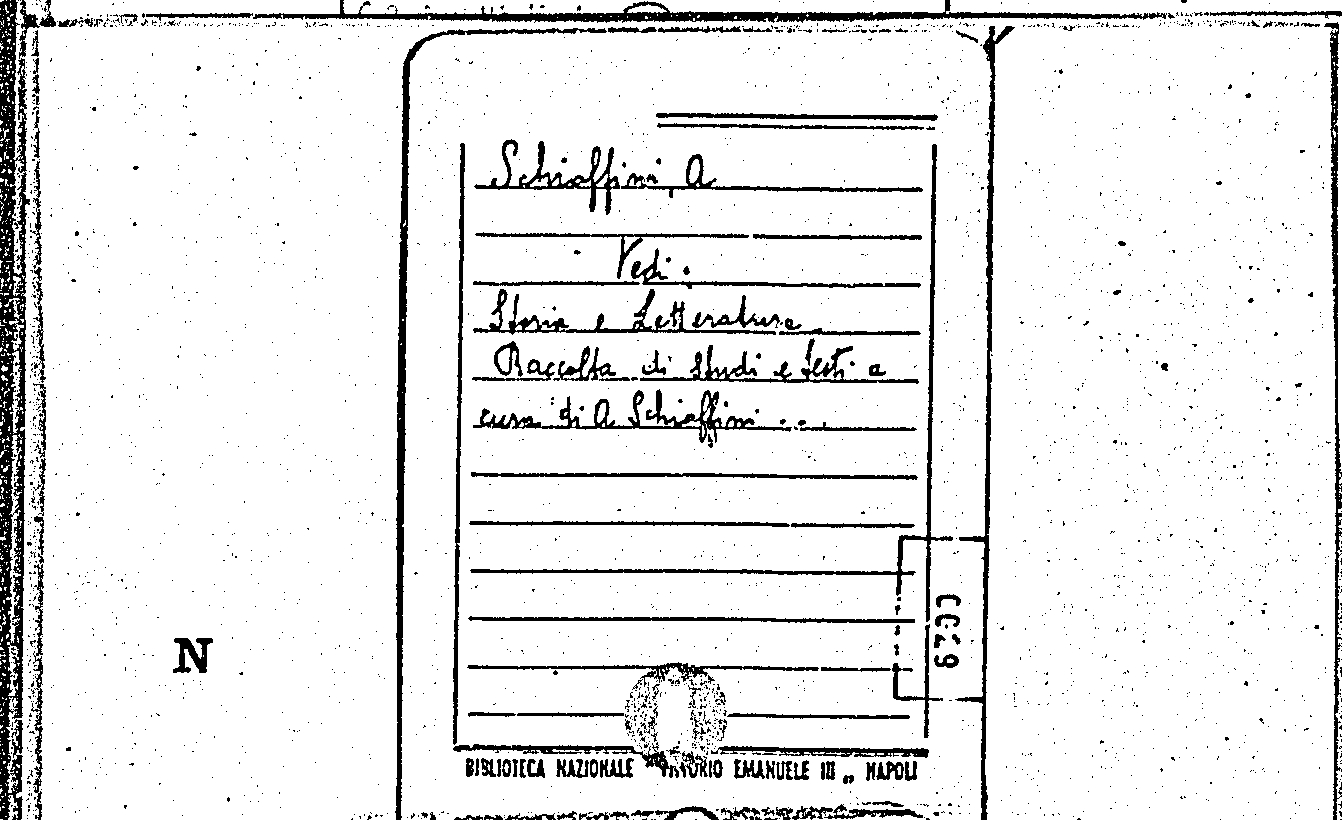 Schiaffini, A
Vedi:
Storia e Letteratura.
Raccolta di studi e testi a
cura di A Schiaffini ...
0029
N
BIBLIOTECA NAZIONALE "VITTORIO EMANUELE III„ NAPOLI